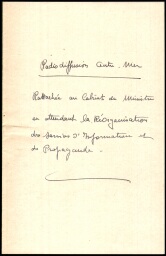 Radiodiffusion Outre Mer
Rattachée au Cabinet du Ministre
en attendant la Réorganisation
des services d'Information et
de Propagande.